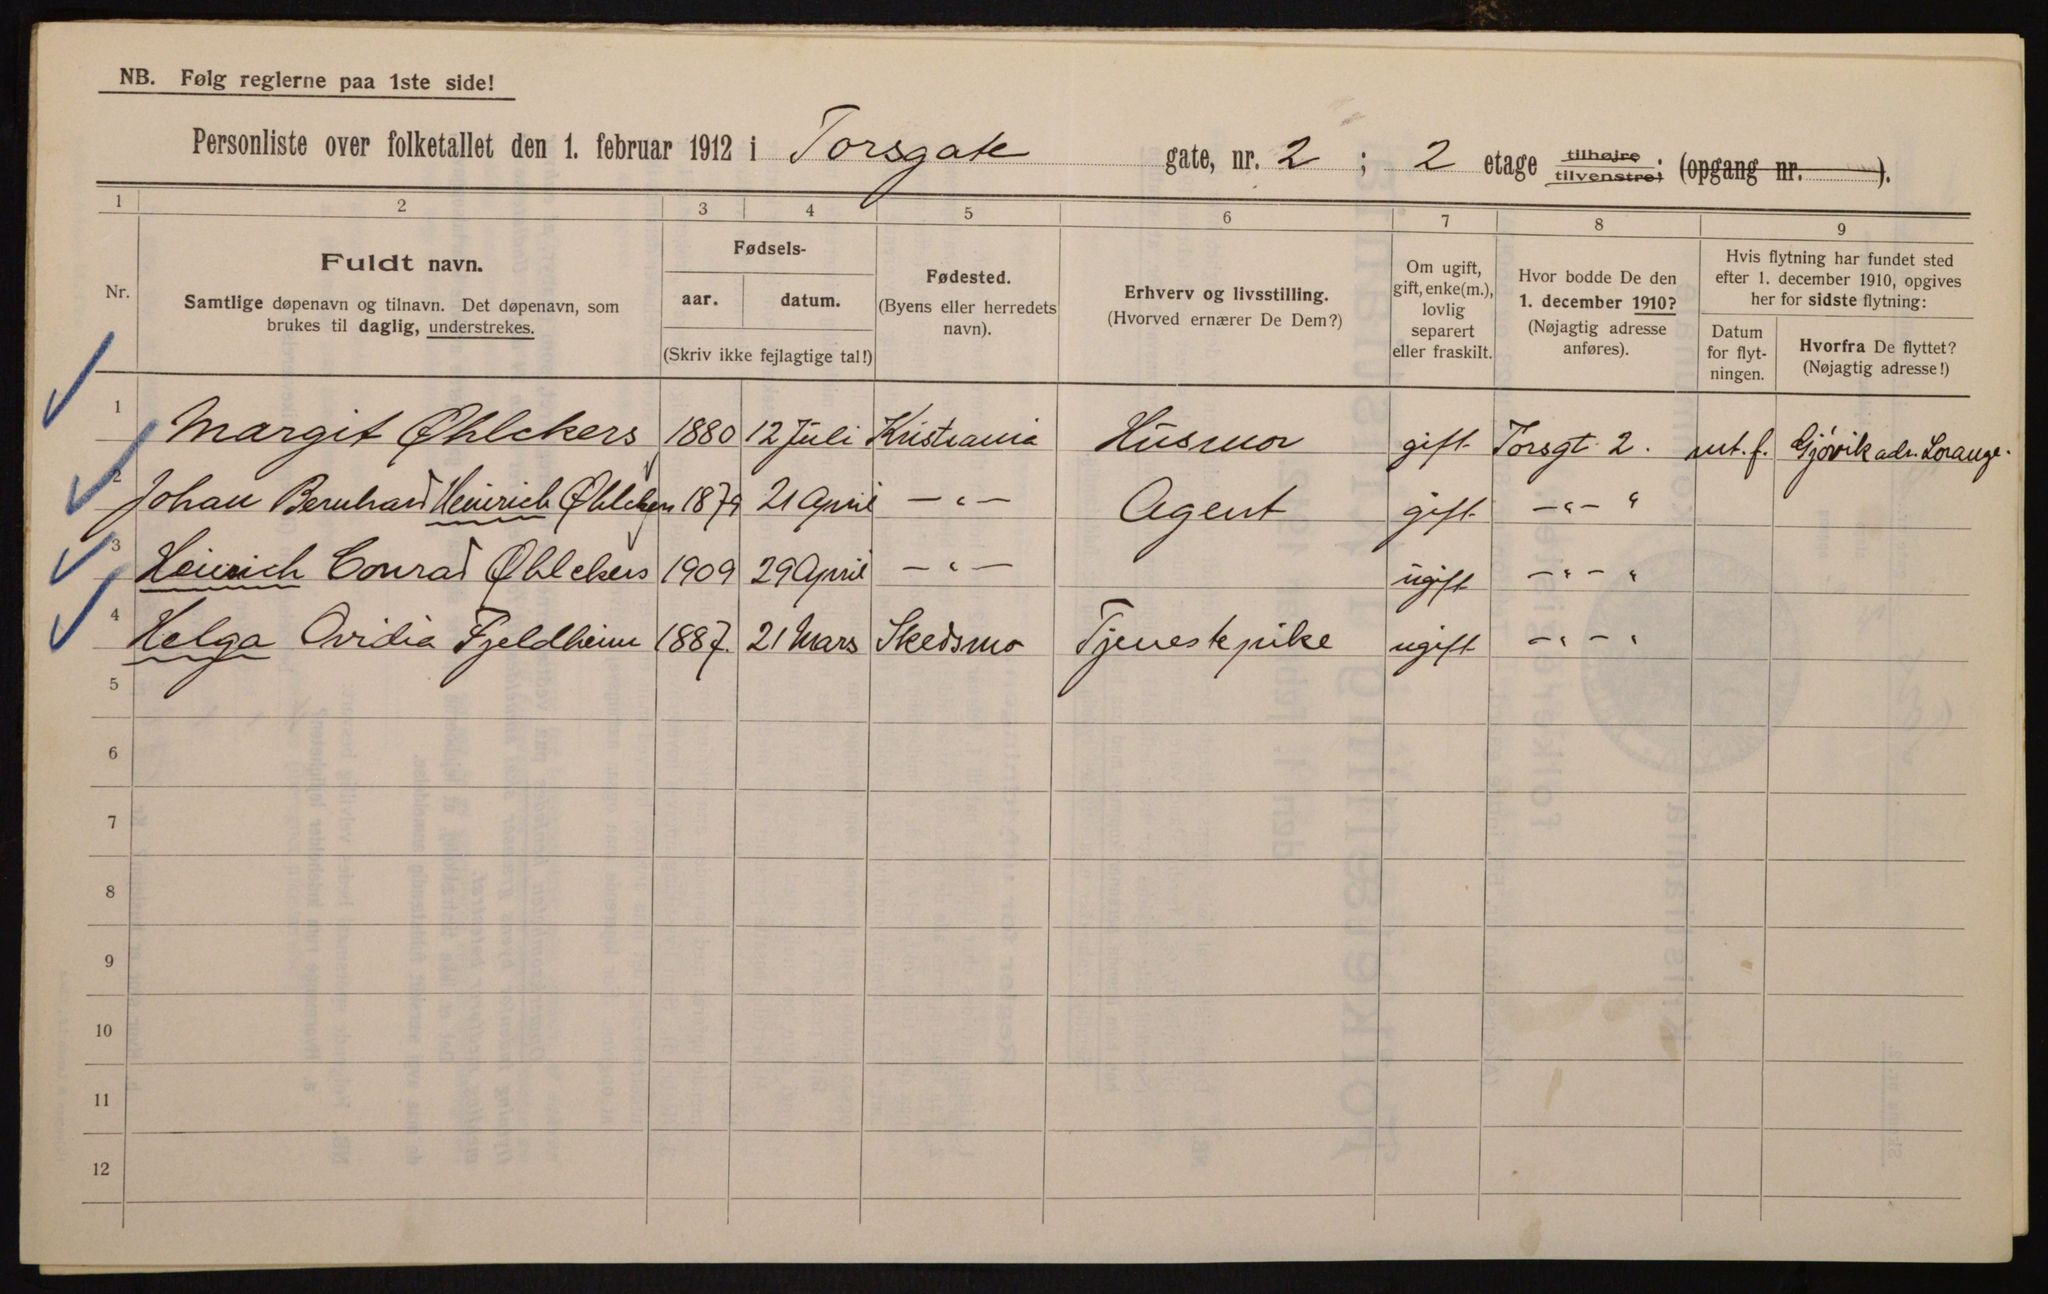 NB. Følg reglerne paa 1ste side!
Personliste over folketallet den 1. februar 1912 i Torsgate gate, nr. 2 ; 2 etage tilhøjre tilvenstre; (opgang nr. ).
1 2 3 4 5 6 7 8 9
Nr.
Fuldt navn.
Samtlige døpenavn og tilnavn. Det døpenavn, som
brukes til daglig, understrekes.
Fødsels-
aar. datum.
(Skriv ikke fejlagtige tal!)
Fødested.
(Byens eller herredets
navn).
Erhverv og livsstilling.
(Hvorved ernærer De Dem?)
Om ugift,
gift, enke(m.),
lovlig
separert
eller fraskilt.
Hvor bodde De den
1. december 1910?
(Nøjagtig adresse
anføres).
Hvis flytning har fundet sted
efter 1. december 1910, opgives
her for sidste flytning:
Datum
for flyt-
ningen.
Hvorfra De flyttet?
(Nøjagtig adresse!)
1 Margit Øhlckers 1880 12 Juli Kristiania Husmor gift Torsgt 2. mt. f. Gjøvik adr. Lorange.
2 Johan Bernhard Heinrich Øhlckers 1879 21 April — „ — Agent gift — „ — „
3 Heinrich Conrad Øhlckers 1909 29 April — „ — ugift — „ — „
4 Helga Ovidia Fjeldheim 1887. 21 Mars Skedsmo Tjenestepike ugift — „ — „
5
6
7
8
9
10
11
12